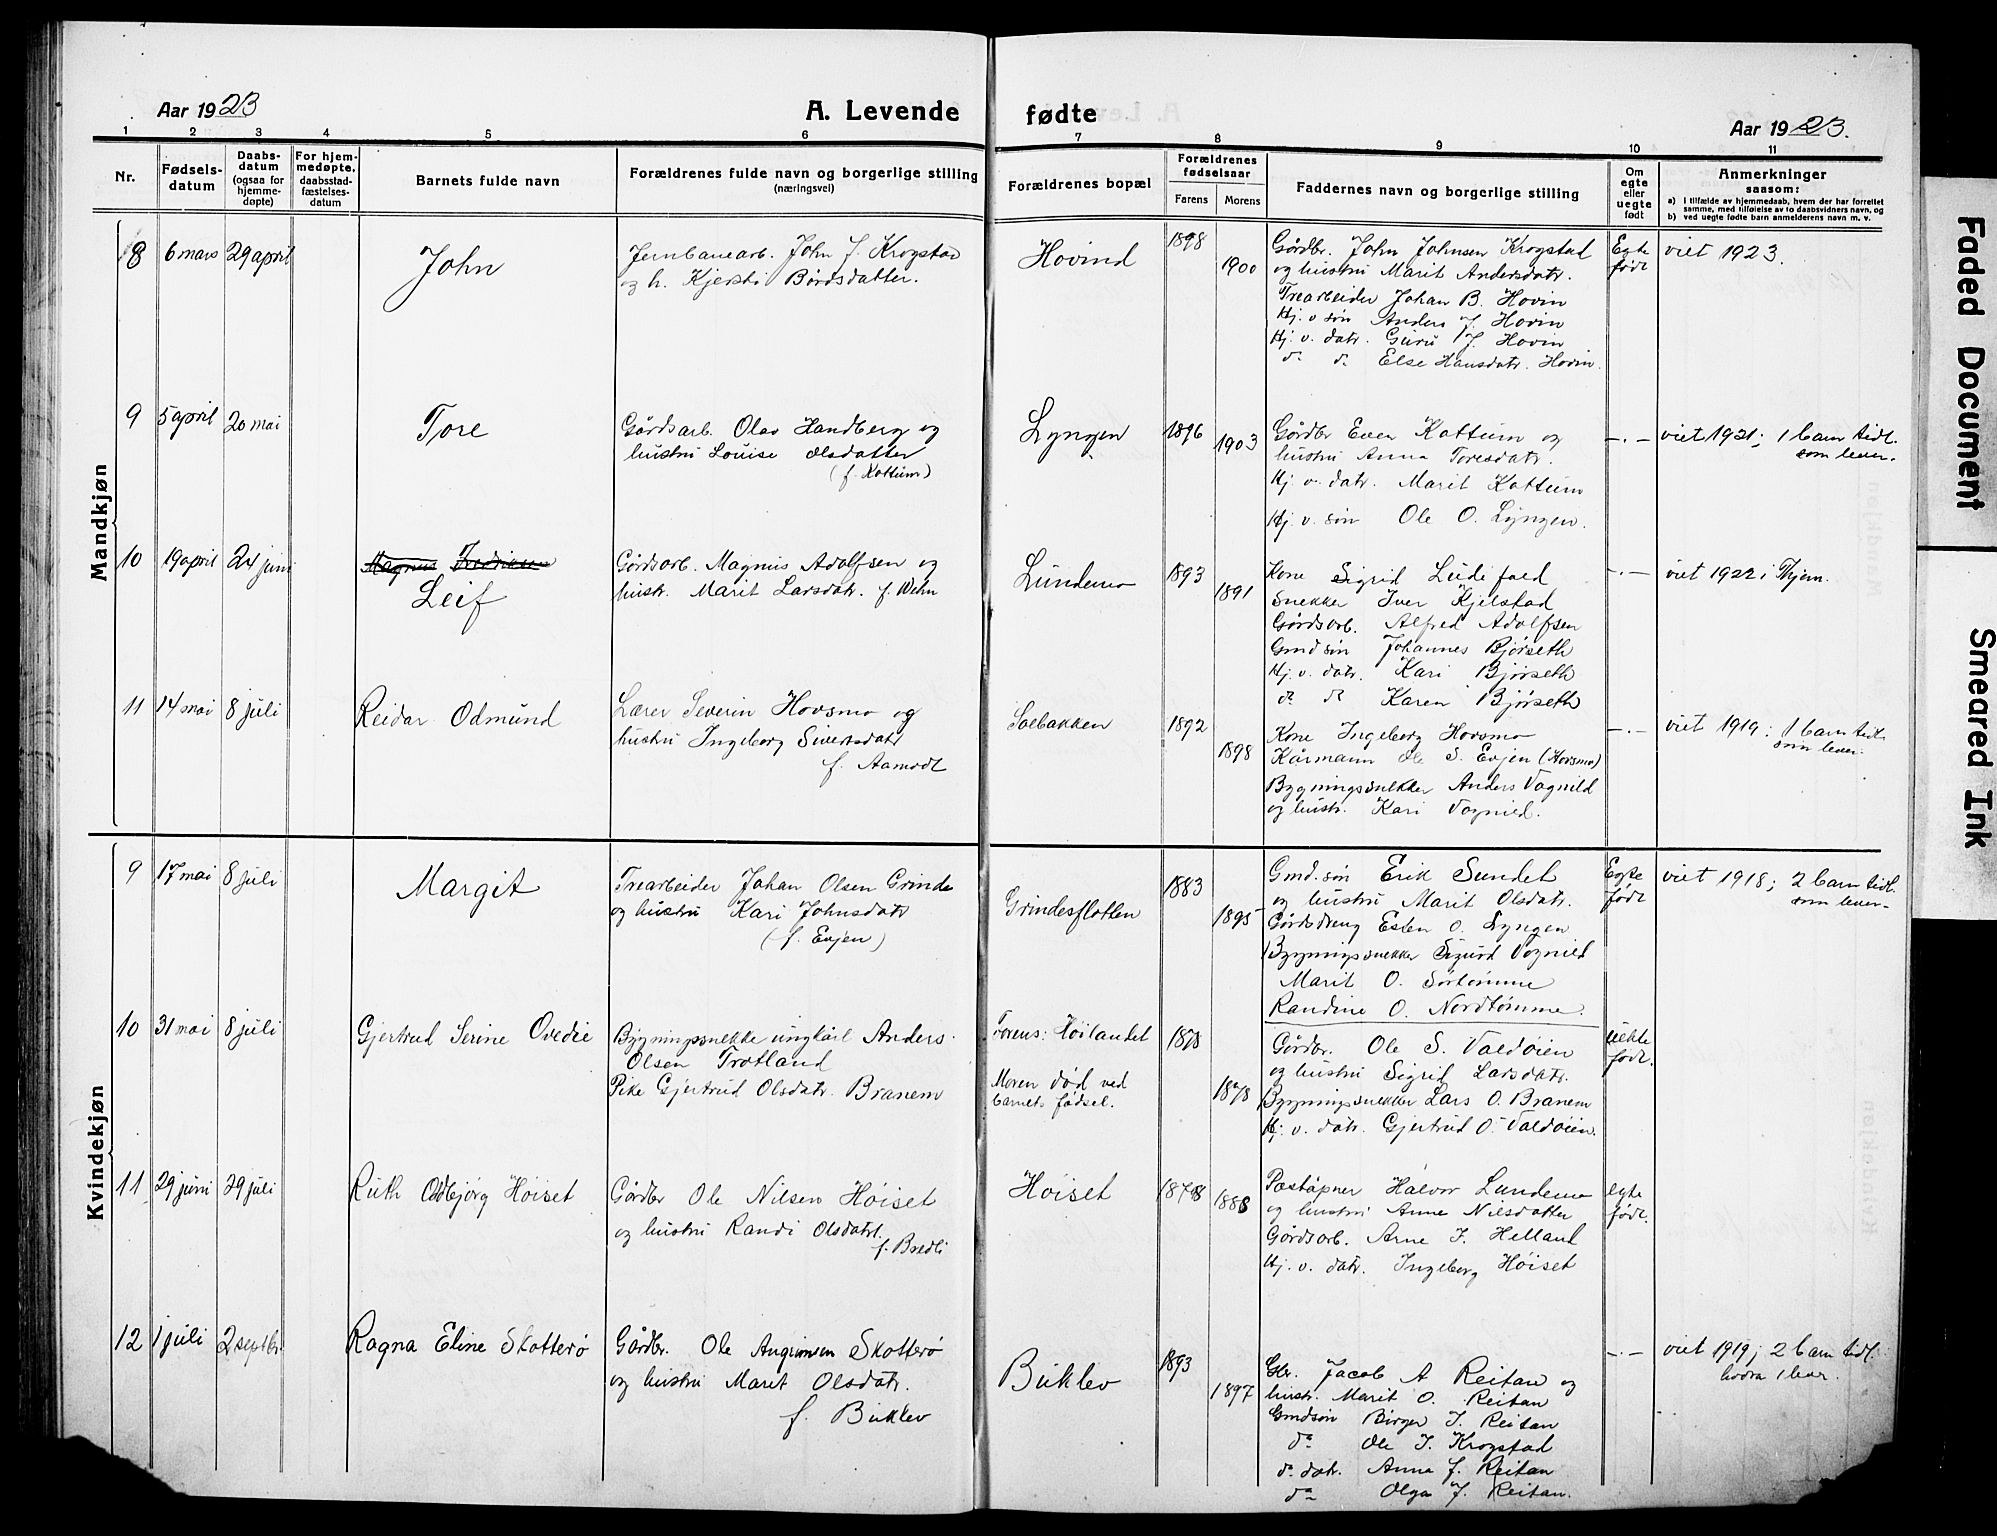 Aar 1923
A. Levende fødte
Aar 1923.
1 2 3 4 5 6 7 8 9 10 11
Nr.
Fødsels-
datum
Daabs-
datum
(ogsaa for
hjemme-
døpte)
For hjem-
medøpte,
daabsstad-
fæstelses-
datum
Barnets fulde navn
Forældrenes fulde navn og borgerlige stilling
(næringsvei)
Forældrenes bopæl
Forældrenes
fødselsaar
Farens Morens
Faddernes navn og borgerlige stilling
Om
egte
eller
uegte
født
Anmerkninger
saasom:
a) I tilfælde av hjemmedaab, hvem der har forrettet
samme, med tilføielse av to daabsvidners navn, og
b) ved uegte fødte barn anmelderens navn m. v.
Mandkjøn
8 6 mars 29 april
John
Jernbanearb. John J. Krogstad
og h. Kjersti Bårdsdatter.
Hovind
1898
1900
Gårdbr. John Johnsen Krogstad
og hustru Marit Andersdatr.
Trearbeider Johan B. Hovin
Hj. v. søn Anders J. Hovin
Hj. v. datr. Guru J. Hovin
do do Else Hansdatr. Hovin.
Egte
født
viet 1923.
9 5 april 20 mai
Tore
Gårdsarb. Olav Handberg og
hustru Louise Olsdatter
(f. Kottum)
Lyngen
1896
1903
Gårdbr Even Kottum og
hustru Anna Toresdatr.
Hj. v. datr. Marit Kottum
Hj. v. søn Ole O. Lyngen.
-.-
viet 1921; 1 barn tidl.
som lever.
10 19 april 24 juni
Magnus Fredriksen
Leif
Gårdsarb. Magnus Adolfsen og
hustr. Marit Larsdatr. f. Wehn
Lundemo
1893
1891
Kone Sigrid Ludefald
Snekker Iver Kjelstad
Gårdsarb. Alfred Adolfsen
Gmdsøn Johannes Bjørseth
Hj. v. datr. Kari Bjørseth
do do Karen Bjørseth
-.-
viet 1922 i Thjem.
11 14 mai 8 juli
Reidar Odmund
Lærer Severin Hovsmo og
hustru Ingeborg Sivertsdatr
f. Aamodt
Solbakken
1892
1898
Kone Ingeborg Hovsmo
Kårmann Ole S. Evjen (Hovsmo)
Bygningssnekker Anders Vognild
og hustr. Kari Vognild.
-.-
viet 1919; 1 barn tidl.
som lever.
Kvindekjøn
9 17 mai 8 juli
Margit
Trearbeider Johan Olsen Grinde
og hustru Kari Johnsdatr
(f. Evjen)
Grindesflotten
1883
1895
Gmd.søn Erik Sundet
og hustru Marit Olsdatr.
Gårdsdreng Esten O. Lyngen
Bygningssnekker Sigurd Vognild
Marit O. Sørtømme
Randine O. Nordtømme.
Egte
født
viet 1918; 2 barn tidl.
som lever.
10 31 mai 8 juli
Gjertrud Serine Ovedie
Bygningssnekke ungkarl Anders
Olsen Trotland
Pike Gjertrud Olsdatr. Branem
Farens: Høilandet
Moren død ved
barnets fødsel.
1878
1878
Gårdbr. Ole S. Valdøien
og hustru Sigrid Larsdatr.
Bygningssnekker Lars O. Branem
Hj. v. datr. Gjertrud O. Valdøien.
Uekte
født.
11 29 juni 29 juli
Ruth Oddbjørg Høiset
Gårdbr Ole Nilsen Høiset
og hustru Randi Olsdatr.
f. Bredli
Høiset
1878
1888
Poståpner Halvor Lundemo
og hustru Anne Nilsdatter
Gårdsarb. Arne J. Helland
Hj. v. datr. Ingeborg Høiset
egte
født.
12 1 juli 2 septbr
Ragna Eline Skotterø
Gårdbr. Ole Angrimsen Skotterø
og hustru Marit Olsdatr.
f. Buklev
Buklev
1893
1897
Gbr. Jacob A Reitan og
hustr. Marit O. Reitan
Gmdsøn Birger J. Reitan
do Ole J. Krogstad
do datr. Anna J. Reitan
do Olga J. Reitan.
-.-
viet 1919; 2 barn tidl.
hvora 1 lever.
Faded Document
Smeared Ink